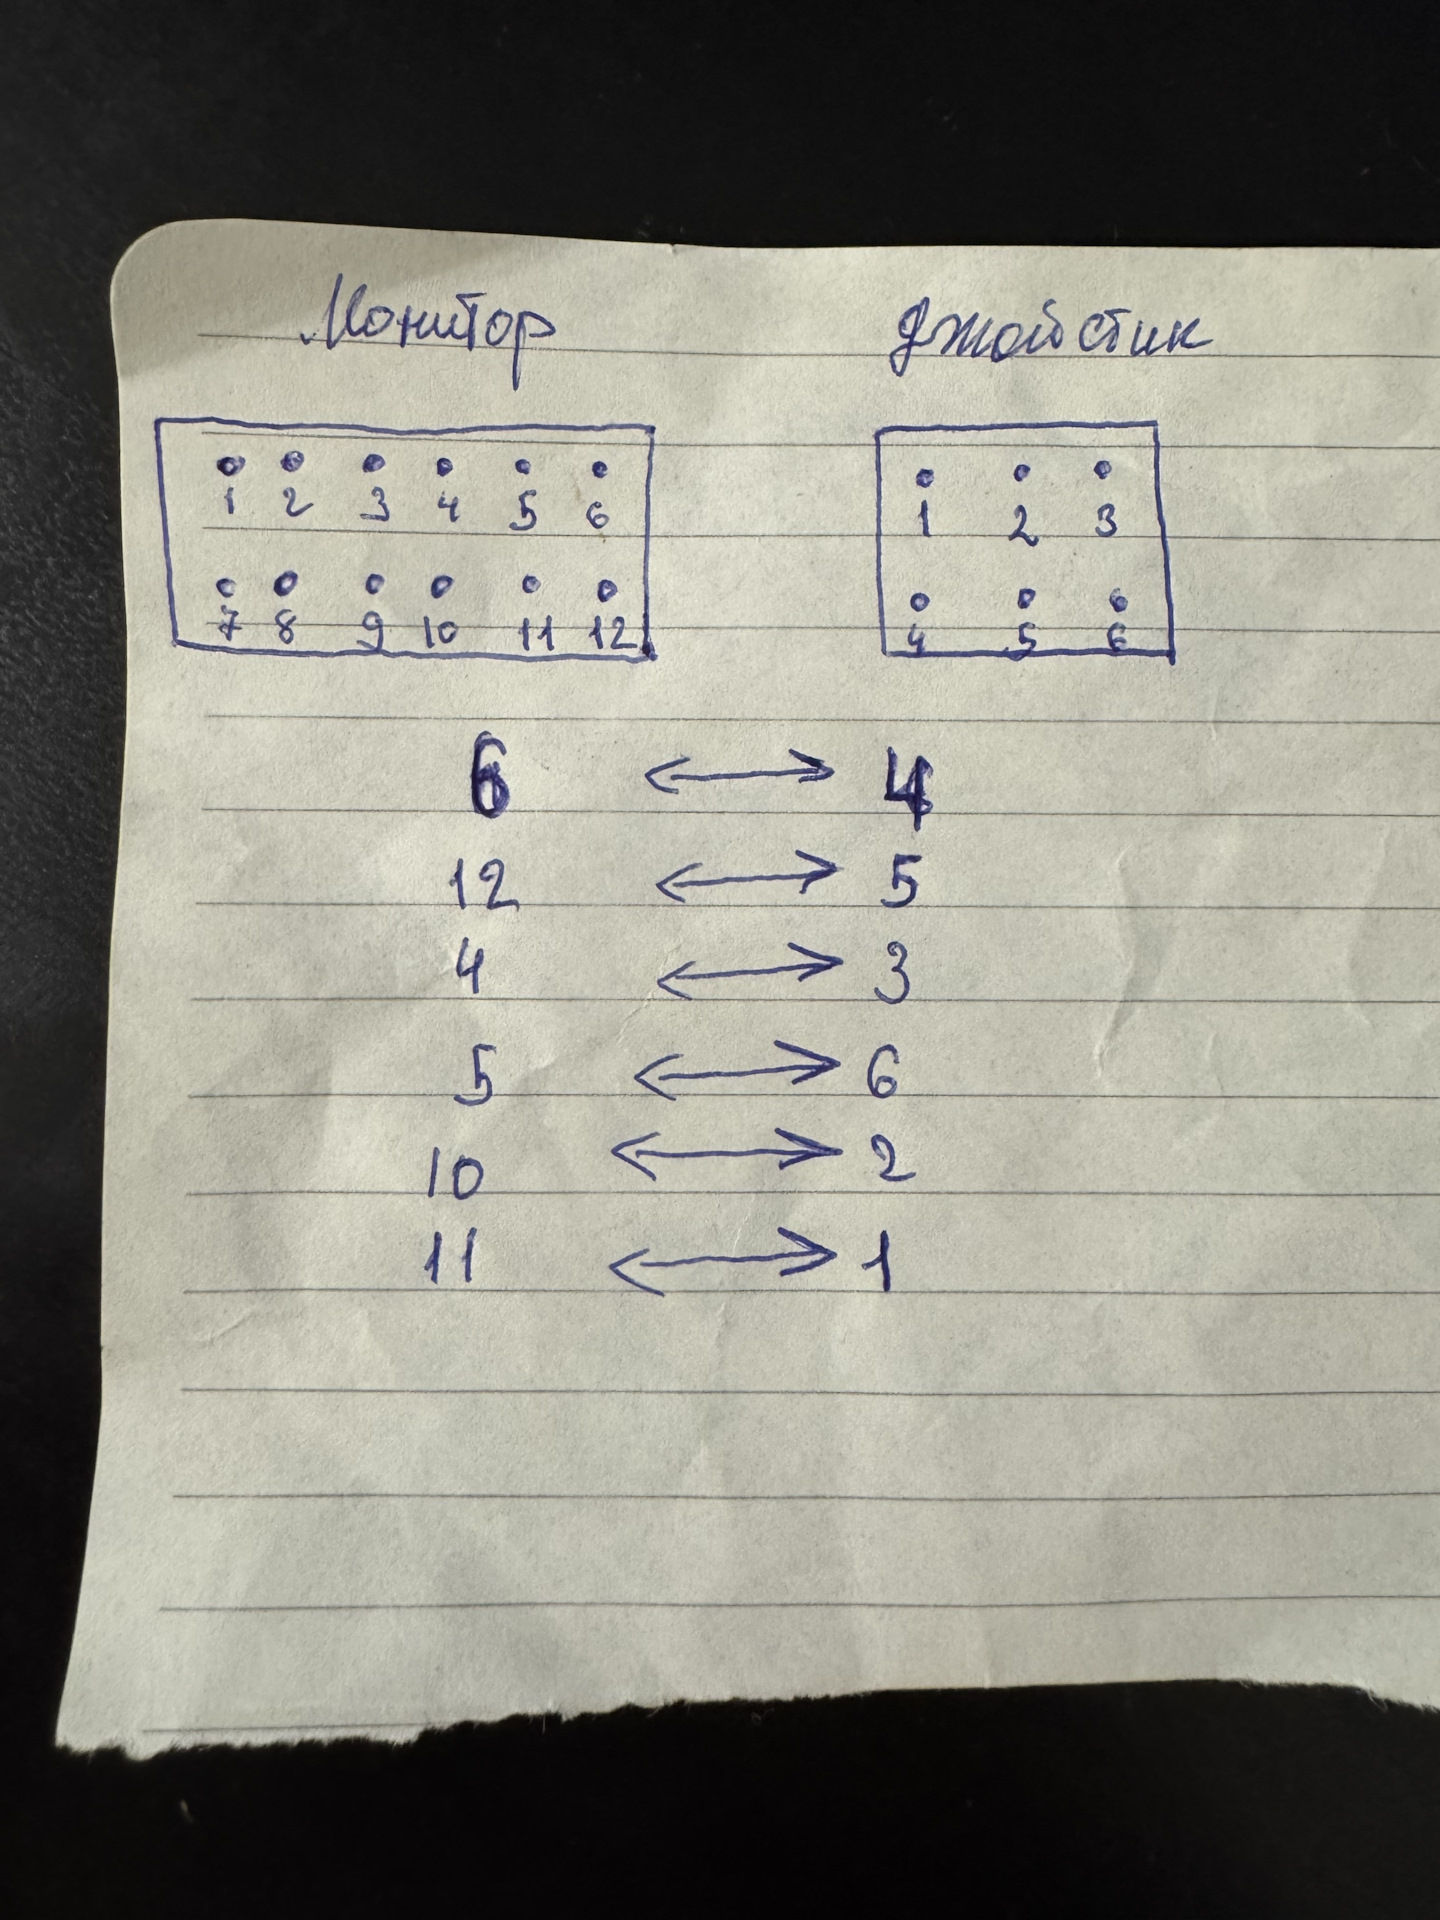 Монитор Джойстик
1 2 3 4 5 6 1 2 3
7 8 9 10 11 12 4 5 6
6 ↔ 4
12 ↔ 5
4 ↔ 3
5 ↔ 6
10 ↔ 2
11 ↔ 1